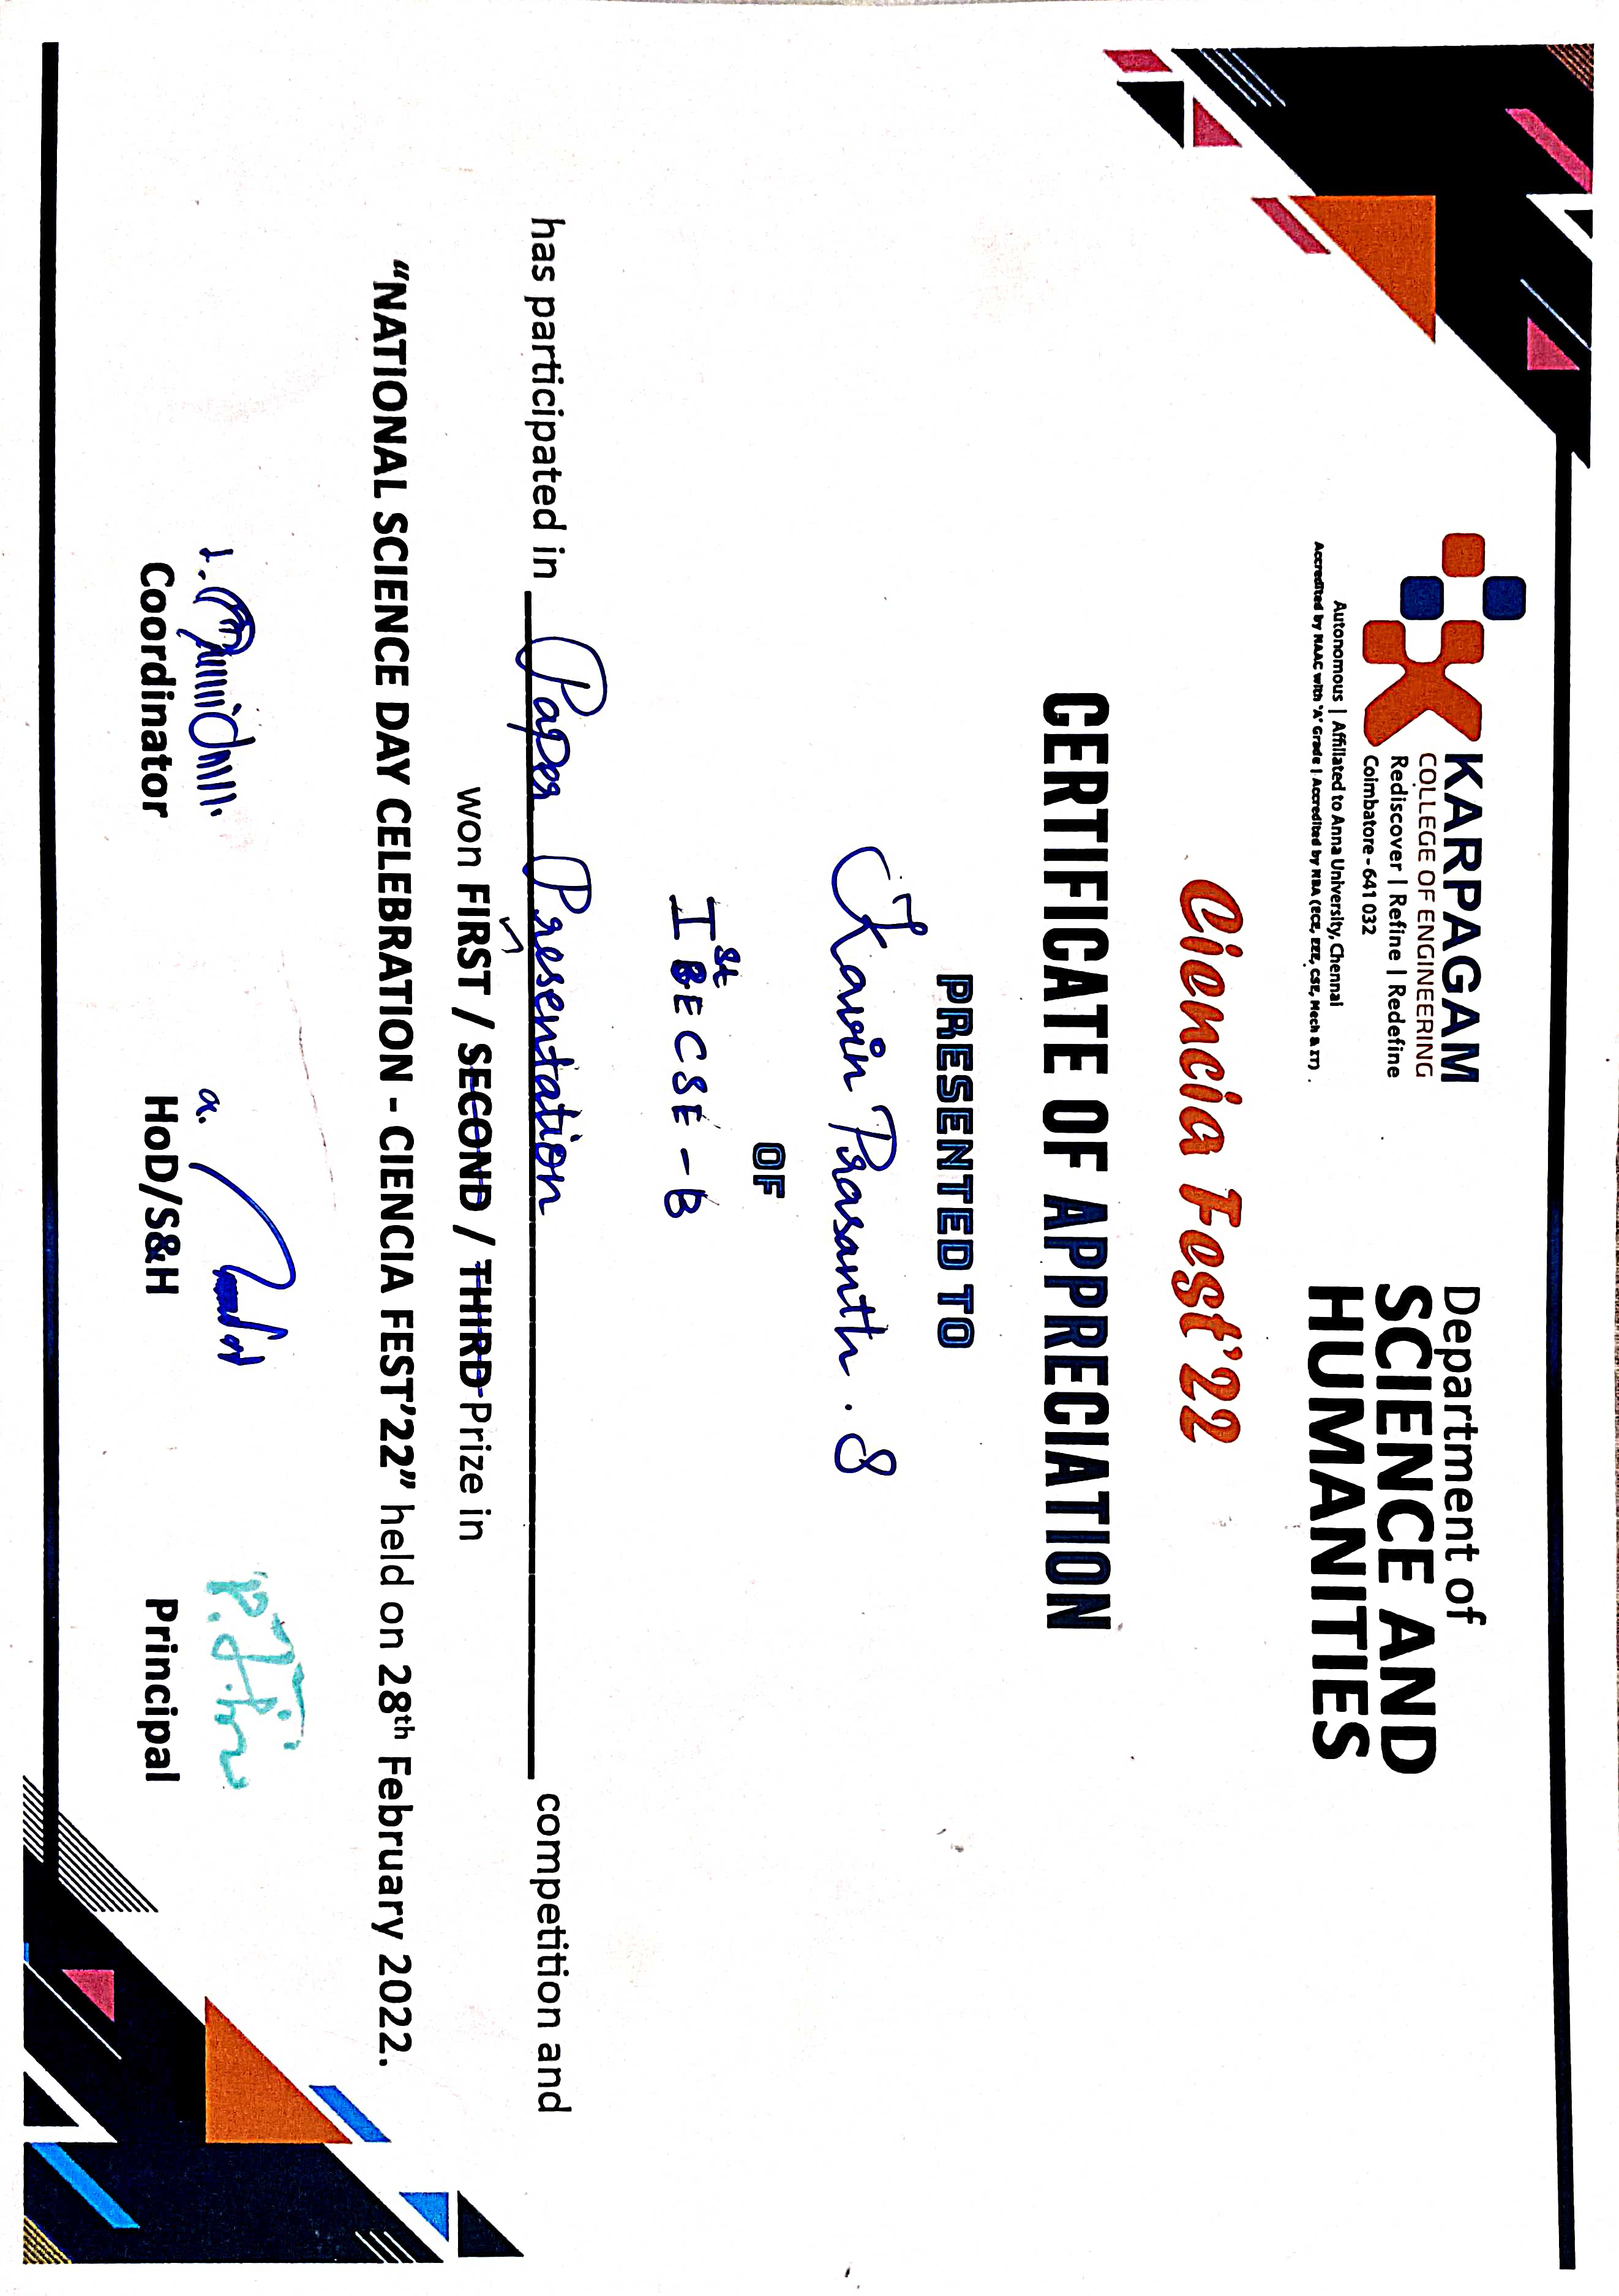 KARPAGAM
COLLEGE OF ENGINEERING
Rediscover | Refine | Redefine
Coimbatore - 641 032
Autonomous | Affiliated to Anna University, Chennai
Accredited by NAAC with "A" Grade | Accredited by NBA (ECE, EEE, CSE, Mech & IT) .
Department of
SCIENCE AND
HUMANITIES
Ciencia Fest'22
CERTIFICATE OF APPRECIATION
PRESENTED TO
Kavin Prasanth . S
OF
Ist BECSE - B
has participated in Paper Presentation competition and
won FIRST / SECOND / THIRD Prize in
"NATIONAL SCIENCE DAY CELEBRATION - CIENCIA FEST'22" held on 28th February 2022.
Coordinator
HoD/S&H
Principal